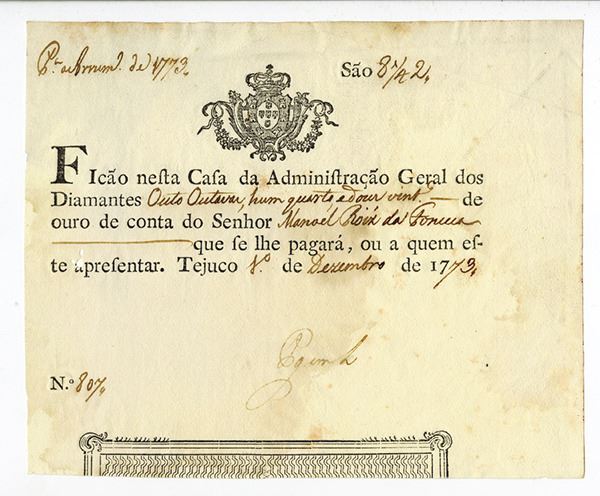 de 1773,
São 8 1/4 2,
FIcão neſta Caſa da Adminiſtração Geral dos
Diamantes Outo Outavas, hum quarto e dous vint de
ouro de conta do Senhor Manoel Roiz da Fonceca
que ſe lhe pagará, ou a quem eſ-
te apreſentar. Tejuco de Dezembro de 1773,
N.º 807,